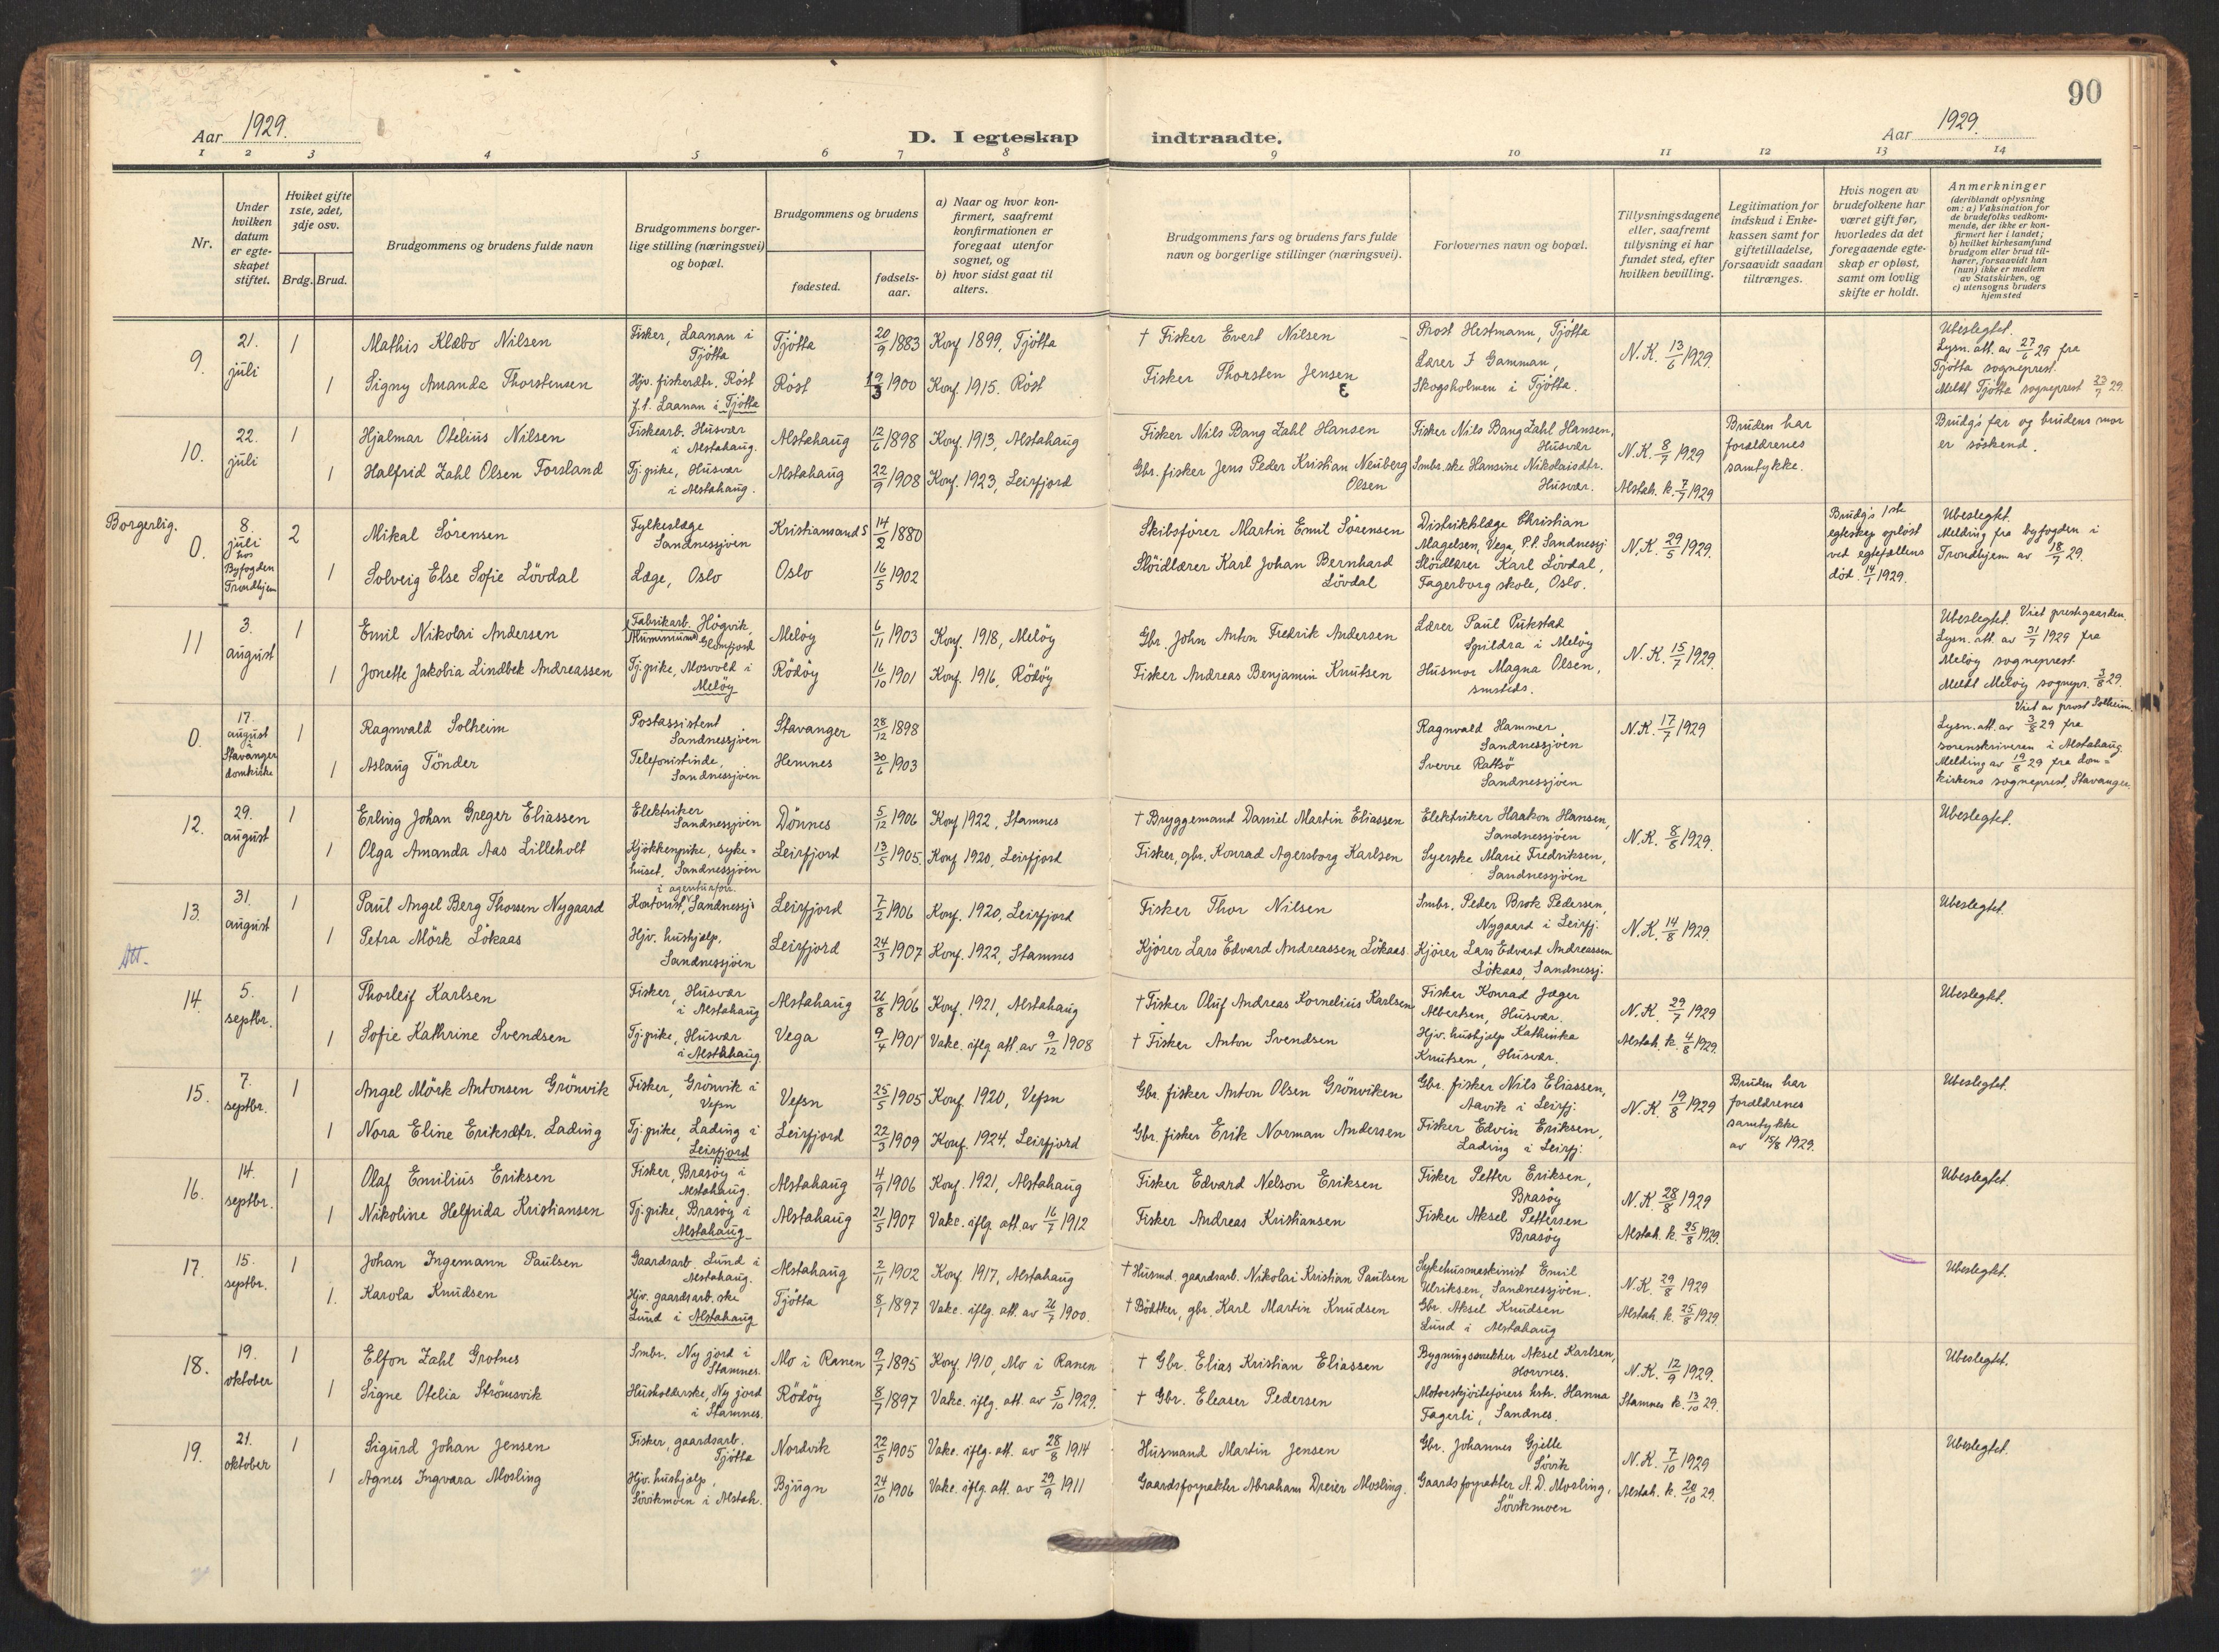 90
Aar 1929.
D. I egteskap indtraadte.
Aar 1929.
1 2 3 4 5 6 7 8 9 10 11 12 13 14
Nr.
Under hvilken datum er egte-skapet stiftet.
Hviket gifte 1ste, 2det, 3dje osv.
Brdg. Brud.
Brudgommens og brudens fulde navn
Brudgommens borger-lige stilling (næringsvei) og bopæl.
Brudgommens og brudens
fødested.
fødsels-aar.
a) Naar og hvor kon-firmert, saafremt konfirmationen er foregaat utenfor sognet, og
b) hvor sidst gaat til alters.
Brudgommens fars og brudens fars fulde navn og borgerlige stillinger (næringsvei).
Forlovernes navn og bopæl.
Tillysningsdagene eller, saafremt tillysning ei har fundet sted, efter hvilken bevilling.
Legitimation for indskud i Enke-kassen samt for giftetilladelse, forsaavidt saadan tiltrænges.
Hvis nogen av brudefolkene har været gift før, hvorledes da det foregaaende egte-skap er opløst, samt om lovlig skifte er holdt.
Anmerkninger
(deriblandt oplysning om: a) Vaksination for de brudefolks vedkom-mende, der ikke er kon-firmert her i landet; b) hvilket kirkesamfund brudgom eller brud til-hører, forsaavidt han (hun) ikke er medlem av Statskirken, og c) utensogns bruders hjemsted
9. 21. juli 1 Mathis Klæbo Nilsen Fisker, Laanan i Tjøtta Tjøtta 20/9 1883 Konf 1899, Tjøtta † Fisker Evert Nilsen Prost Hestmann, Tjøtta N.K. 13/6 1929. Ubeslegtet. Lysn. att. av 27/6 29 fra Tjøtta sogneprest.
1 Signy Amanda Thorstensen Hjv. fiskerdtr. Røst f.t. Laanan i Tjøtta Røst 19/3 1900 Konf. 1915. Røst Fisker Thorsten Jensen Lærer J Gamman, Skogsholmen i Tjøtta. Meldt Tjøtta sogneprest 23/7 29.
10. 22. juli 1 Hjalmar Otelius Nilsen Fiskearb. Husvær i Alstahaug. Alstahaug 12/6 1898 Konf. 1913, Alstahaug Fisker Nils Bang Zahl Hansen Fisker Nils Bang Zahl Hansen, Husvær N.K. 8/7 1929 Bruden har forældrenes samtykke. Brudg's far og brudens mor er søskend.
1 Halfrid Zahl Olsen Forsland Tj. pike, Husvær i Alstahaug. Alstahaug 22/9 1908 Konf. 1923, Leirfjord Gbr. fisker Jens Peder Kristian Neuberg Olsen Smbr.ske Hansine Nikolaisdtr. Husvær. Alstah. k. 7/7 1929
Borgerlig. 0. 8. juli hos Byfogden Trondhjem 2 Mikal Sørensen Fylkeslæge Sandnessjøen Kristiansand S 14/2 1880 Skibsfører Martin Emil Sørensen Distriktslæge Christian Magelsen, Vega, P.t. Sandnessj. N.K. 29/5 1929. Brudg's 1ste egteskap opløst ved egtefællens død. 14/7 1929. Ubeslegtet. Melding fra byfogden i Trondhjem av 18/7 29.
1 Solveig Else Sofie Lövdal Læge, Oslo Oslo 16/5 1902 Slöidlærer Karl Johan Bernhard Lövdal Slöidlærer Karl Lövdal, Fagerborg skole, Oslo.
11 3. august 1 Emil Nikolai Andersen Fabrikarb. Høgvik, Aluminium Glomfjord Meløy 6/11 1903 Konf. 1918, Meløy Gbr. John Anton Fredrik Andersen Lærer Paul Pukstad Spildra i Meløy N.K. 15/7 1929. Ubeslegtet. Viet prestgaarden. Lysn. att. av 31/7 1929 fra Meløy sogneprest.
1 Jonette Jakobia Lindbek Andreassen Tj. pike, Mosvold i Meløy Rødøy 16/10 1901 Konf. 1916, Rødøy Fisker Andreas Benjamin Knutsen Husmor Magna Olsen, smsteds. Meldt Meløy sognepr. 3/8 29.
0. 17. august i Stavanger domkirke 1 Ragnvald Solheim Postassistent Sandnessjøen Stavanger 28/12 1898 Ragnvald Hammer, Sandnessjøen N.K. 17/7 1929 Viet av prost Solheim. Lysn. att. av 3/8 29 fra sorenskriveren i Alstahaug.
1 Aslaug Tönder Telefonistinde, Sandnessjøen Hemnes 30/6 1903 Sverre Rattsö Sandnessjøen Melding av 19/8 29 fra dom-kirkens sogneprest, Stavanger.
12. 29. august 1 Erling Johan Greger Eliassen Elektriker Sandnessjøen Dønnes 5/12 1906 Konf 1922, Stamnes † Bryggemand Daniel Martin Eliassen Elektriker Haakon Hansen, Sandnessjøen N.K. 8/8 1929. Ubeslegtet.
1 Olga Amanda Aas Lilleholt Kjøkkenpike, syke-huset, Sandnessjøen Leirfjord 13/5 1905. Konf 1920, Leirfjord Fisker, gbr. Konrad Agersborg Karlsen Syerske Marie Fredriksen, Sandnessjøen
13. 31. august 1 Paul Angel Berg Thorsen Nygaard Kontorist, i agenturforr. Sandnessj. Leirfjord 7/2 1906 Konf. 1920, Leirfjord Fisker Thor Nilsen Smbr. Peder Brok Pedersen, Nygaard i Leirfj. N.K. 14/8 1929. Ubeslegtet.
Att. 1 Petra Mörk Lökaas Hjv. hushjælp, Sandnessjøen Leirfjord 24/3 1907 Konf. 1922, Stamnes Kjører Lars Edvard Andreassen Lökaas Kjører Lars Edvard Andreassen Lökaas, Sandnessj.
14. 5. septbr. 1 Thorleif Karlsen Fisker, Husvær i Alstahaug Alstahaug 26/8 1906 Konf. 1921, Alstahaug † Fisker Oluf Andreas Kornelius Karlsen Fisker Konrad Jæger Albertsen, Husvær. N.K. 29/7 1929 Ubeslegtet.
1 Sofie Kathrine Svendsen Tj. pike, Husvær i Alstahaug. Vega 9/4 1901 Vakc. iflg. att. av 9/12 1908 † Fisker Anton Svendsen Hjv. hushjælp Kathinka Knutsen, Husvær. Alstah. k. 4/8 1929.
15. 7. septbr. 1 Angel Mörk Antonsen Grönvik Fisker, Grönvik i Vefsn Vefsn 25/5 1905 Konf. 1920, Vefsn Gbr. fisker Anton Olsen Grönviken Gbr. fisker Nils Eliassen, Aavik i Leirfj. N.K. 19/8 1929 Bruden har forældrenes samtykke av 15/8 1929. Ubeslegtet.
1 Nora Eline Eriksdtr. Lading Tj. pike, Lading i Leirfjord Leirfjord 22/3 1909 Konf. 1924. Leirfjord Gbr. fisker Erik Norman Andersen Fisker Edvin Eriksen, Lading i Leirfj.
16. 14. septbr. 1 Olaf Emilius Eriksen Fisker, Brasøy i Alstahaug. Alstahaug 4/9 1906 Konf. 1921, Alstahaug Fisker Edvard Nelson Eriksen Fisker Petter Eriksen, Brasøy N.K. 28/8 1929 Ubeslegtet.
1 Nikoline Helfrida Kristiansen Tj. pike, Brasøy i Alstahaug Alstahaug 21/5 1907 Vakc. iflg. att. av 16/7 1912 Fisker Andreas Kristiansen Fisker Aksel Pettersen Brasøy Alstah. k. 25/8 1929.
17. 15. septbr. 1 Johan Ingemann Paulsen Gaardsarb. Lund i Alstahaug. Alstahaug 2/11 1902 Konf. 1917, Alstahaug † Husmd. gaardsarb. Nikolai Kristian Paulsen Sykehusmaskinist Emil Ulriksen, Sandnessjøen. N.K. 29/8 1929 Ubeslegtet.
1. Karola Knudsen Hjv. gaardsarb.ske Lund i Alstahaug Tjøtta 8/1 1897 Vakc. iflg. att. av 26/7 1900. † Bödtker, gbr. Karl Martin Knudsen Gbr. Aksel Knudsen Lund i Alstahaug Alstah. k. 25/8 1929.
18. 19. oktober 1 Elfon Zahl Grotnes Smbr. Ny jord i Stamnes. Mo i Ranen 9/7 1895 Konf. 1910, Mo i Ranen † Gbr. Elias Kristian Eliassen Bygningssnekker Aksel Karlsen, Horvnes. N.K. 12/9 1929. Ubeslegtet.
1 Signe Otelia Strömsvik Husholderske, Ny jord i Stamnes. Rødøy 8/7 1897 Vakc. iflg. att. av 5/10 1929. † Gbr. Eleaser Pedersen Motorskjøitefører hstr. Hanna Fagerli, Sandnes. Stamnes k. 13/10 29.
19. 21. oktober 1 Sigurd Johan Jensen Fisker, gaardsarb. Tjøtta Nordvik 22/5 1905 Vakc. iflg. att. av 28/8 1914 Husmand Martin Jensen Gbr. Johannes Gjelle Søvik N.K. 7/10 1929 Ubeslegtet.
1 Agnes Ingvara Mosling Hjv. hushjælp, Søvikmoen i Alstah. Bjugn 24/10 1906 Vakc. iflg. att. av 29/9 1911 Gaardsforpakter Abraham Dreier Mosling. Gaardsforpakter A. D. Mosling, Søvikmoen Alstah. k. 20/10 29.